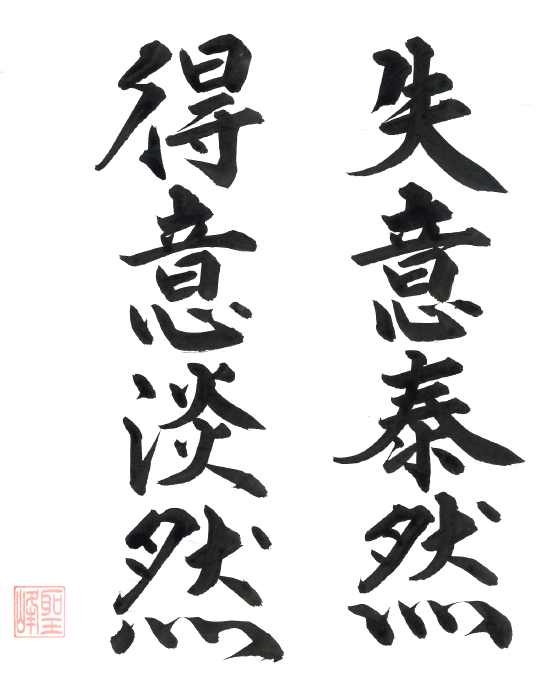 失意泰然
得意淡然
聖峰